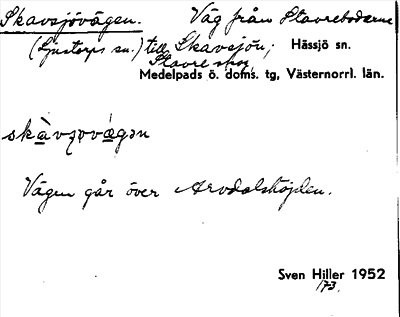 Skavsjövägen. Väg från Stavrebodarna
(Ljustorps sn.) till Skavsjön; Hässjö sn.
Stavre skog
Medelpads ö. doms. tg, Västernorrl. län.
skàvʒovä́gən
Vägen går över Arvdalshöjden.
Sven Hiller 1952
173.